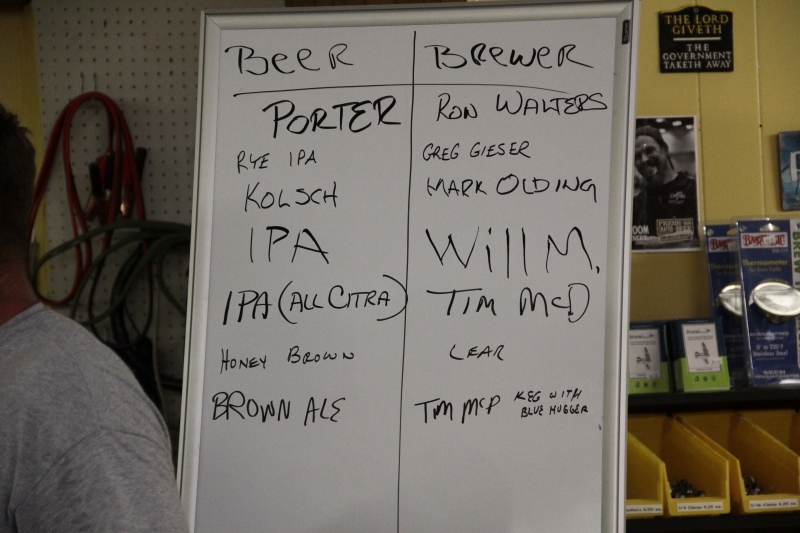 BEER BREWER
PORTER RON WALTERS
RYE IPA GREG GIESER
KOLSCH MARK OLDING
IPA Will M.
IPA (ALL CITRA) TIM McD
HONEY BROWN LEAR
BROWN ALE TIM McD KEG WITH
BLUE HUGGER
THE LORD
GIVETH
THE
GOVERNMENT
TAKETH AWAY
Thermometer
Stainless Steel